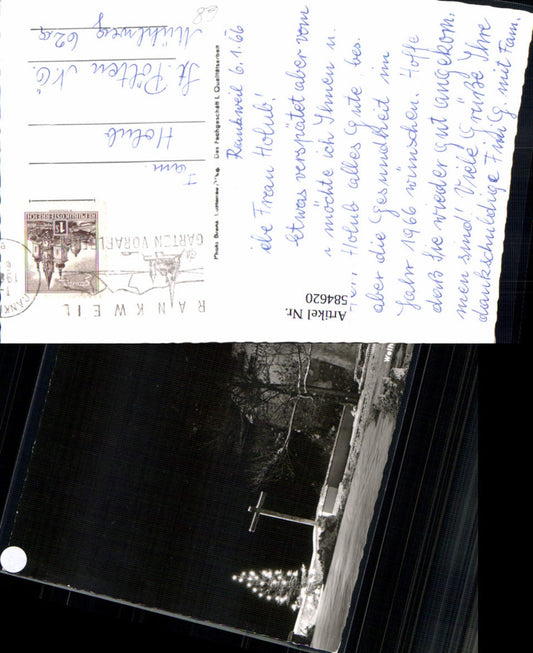 Rankweil 6.1.66
iebe Frau Holub!
etwas verspätet aber vom
möchte ich Ihnen u.
Holub alles Gute bes.
aber die Gesundheit im
Jahr 1966 wünschen. Hoffe
daß Sie wieder gut angekom.
men sind! Viele Grüße Ihre
dankschuldige G. mit Fam.
Das Fachgeschäft f. Qualitätsarbeit
Fam.
Holub
St. Pölten N.Ö.
Mühlweg 62a
68
REPUBLIK ÖSTERREICH
1
RANKWEIL
GARTEN VORARL
Artikel Nr.
584620
Weih